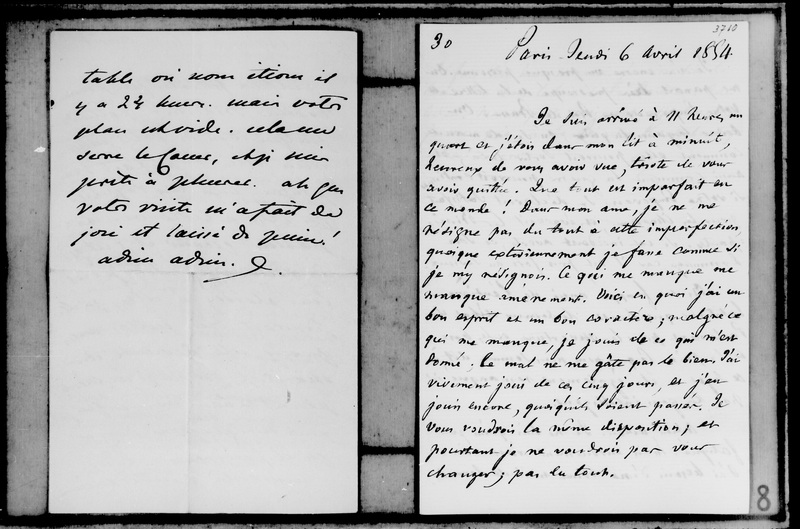 table où nous étions il
y a 24 heures. mais votre
place est vide. cela me
serre le Coeur, et je suis
prête à pleurer. ah que
votre visite m'a fait de
joie et laissé de peine!
adieu adieu.
3710
30 Paris Jeudi 6 Avril 1854.
Je suis arrivé à 11 heures un
quart et j'étois dans mon lit à minuit,
heureux de vous avoir vue, triste de vous
avoir quittée. Que tout est imparfait en
ce monde! Dans mon ame, je ne me
résigne pas du tout à cette imperfection
quoique extérieurement je fasse comme si
je m'y résignois. Ce qui me manque me
manque amèrement. Voici en quoi j'ai un
bon esprit et un bon caractère; malgré ce
qui me manque, je jouis de ce qui m'est
donné. Le mal ne me gâte pas le bien. J'ai
vivement joui de ces cinq jours, et j'en
jouis encore, quoiqu'ils soient passés. Je
vous voudrois la même disposition; et
pourtant je ne voudrois pas vous
changer; pas du tout.
8